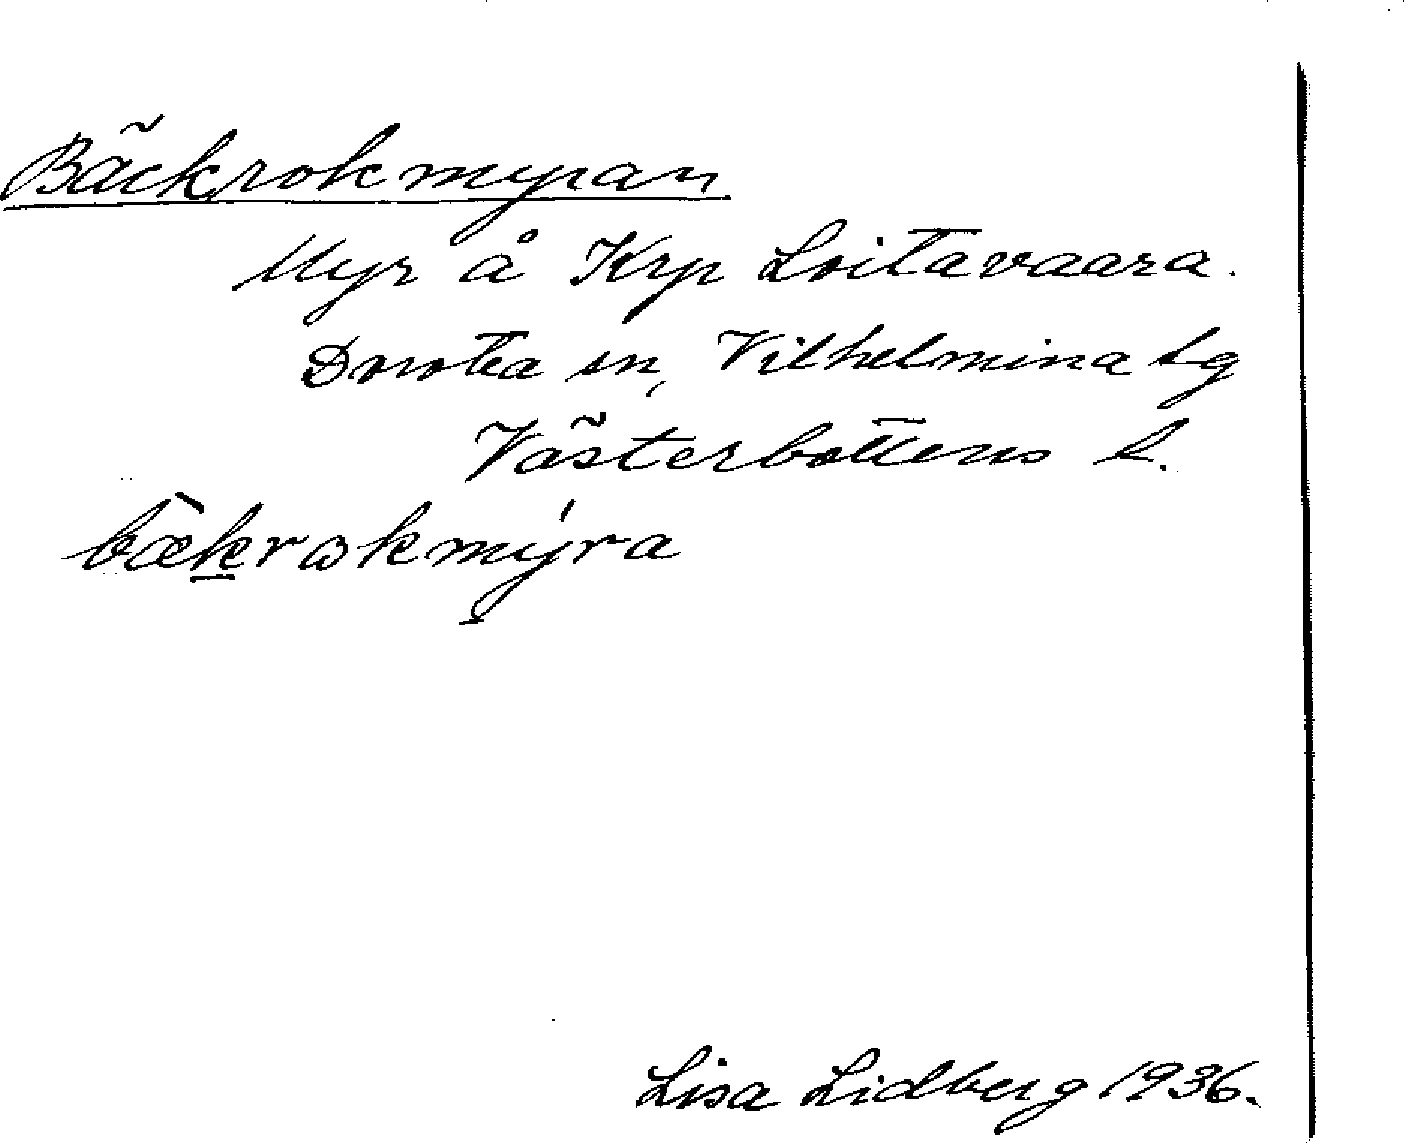 Bäckrokmyran
Myr å Krp Loitavaara.
Dorotea sn, Vilhelmina lg
Västerbottens l.
bæ̀krωkmýra
Lisa Lidberg 1936.